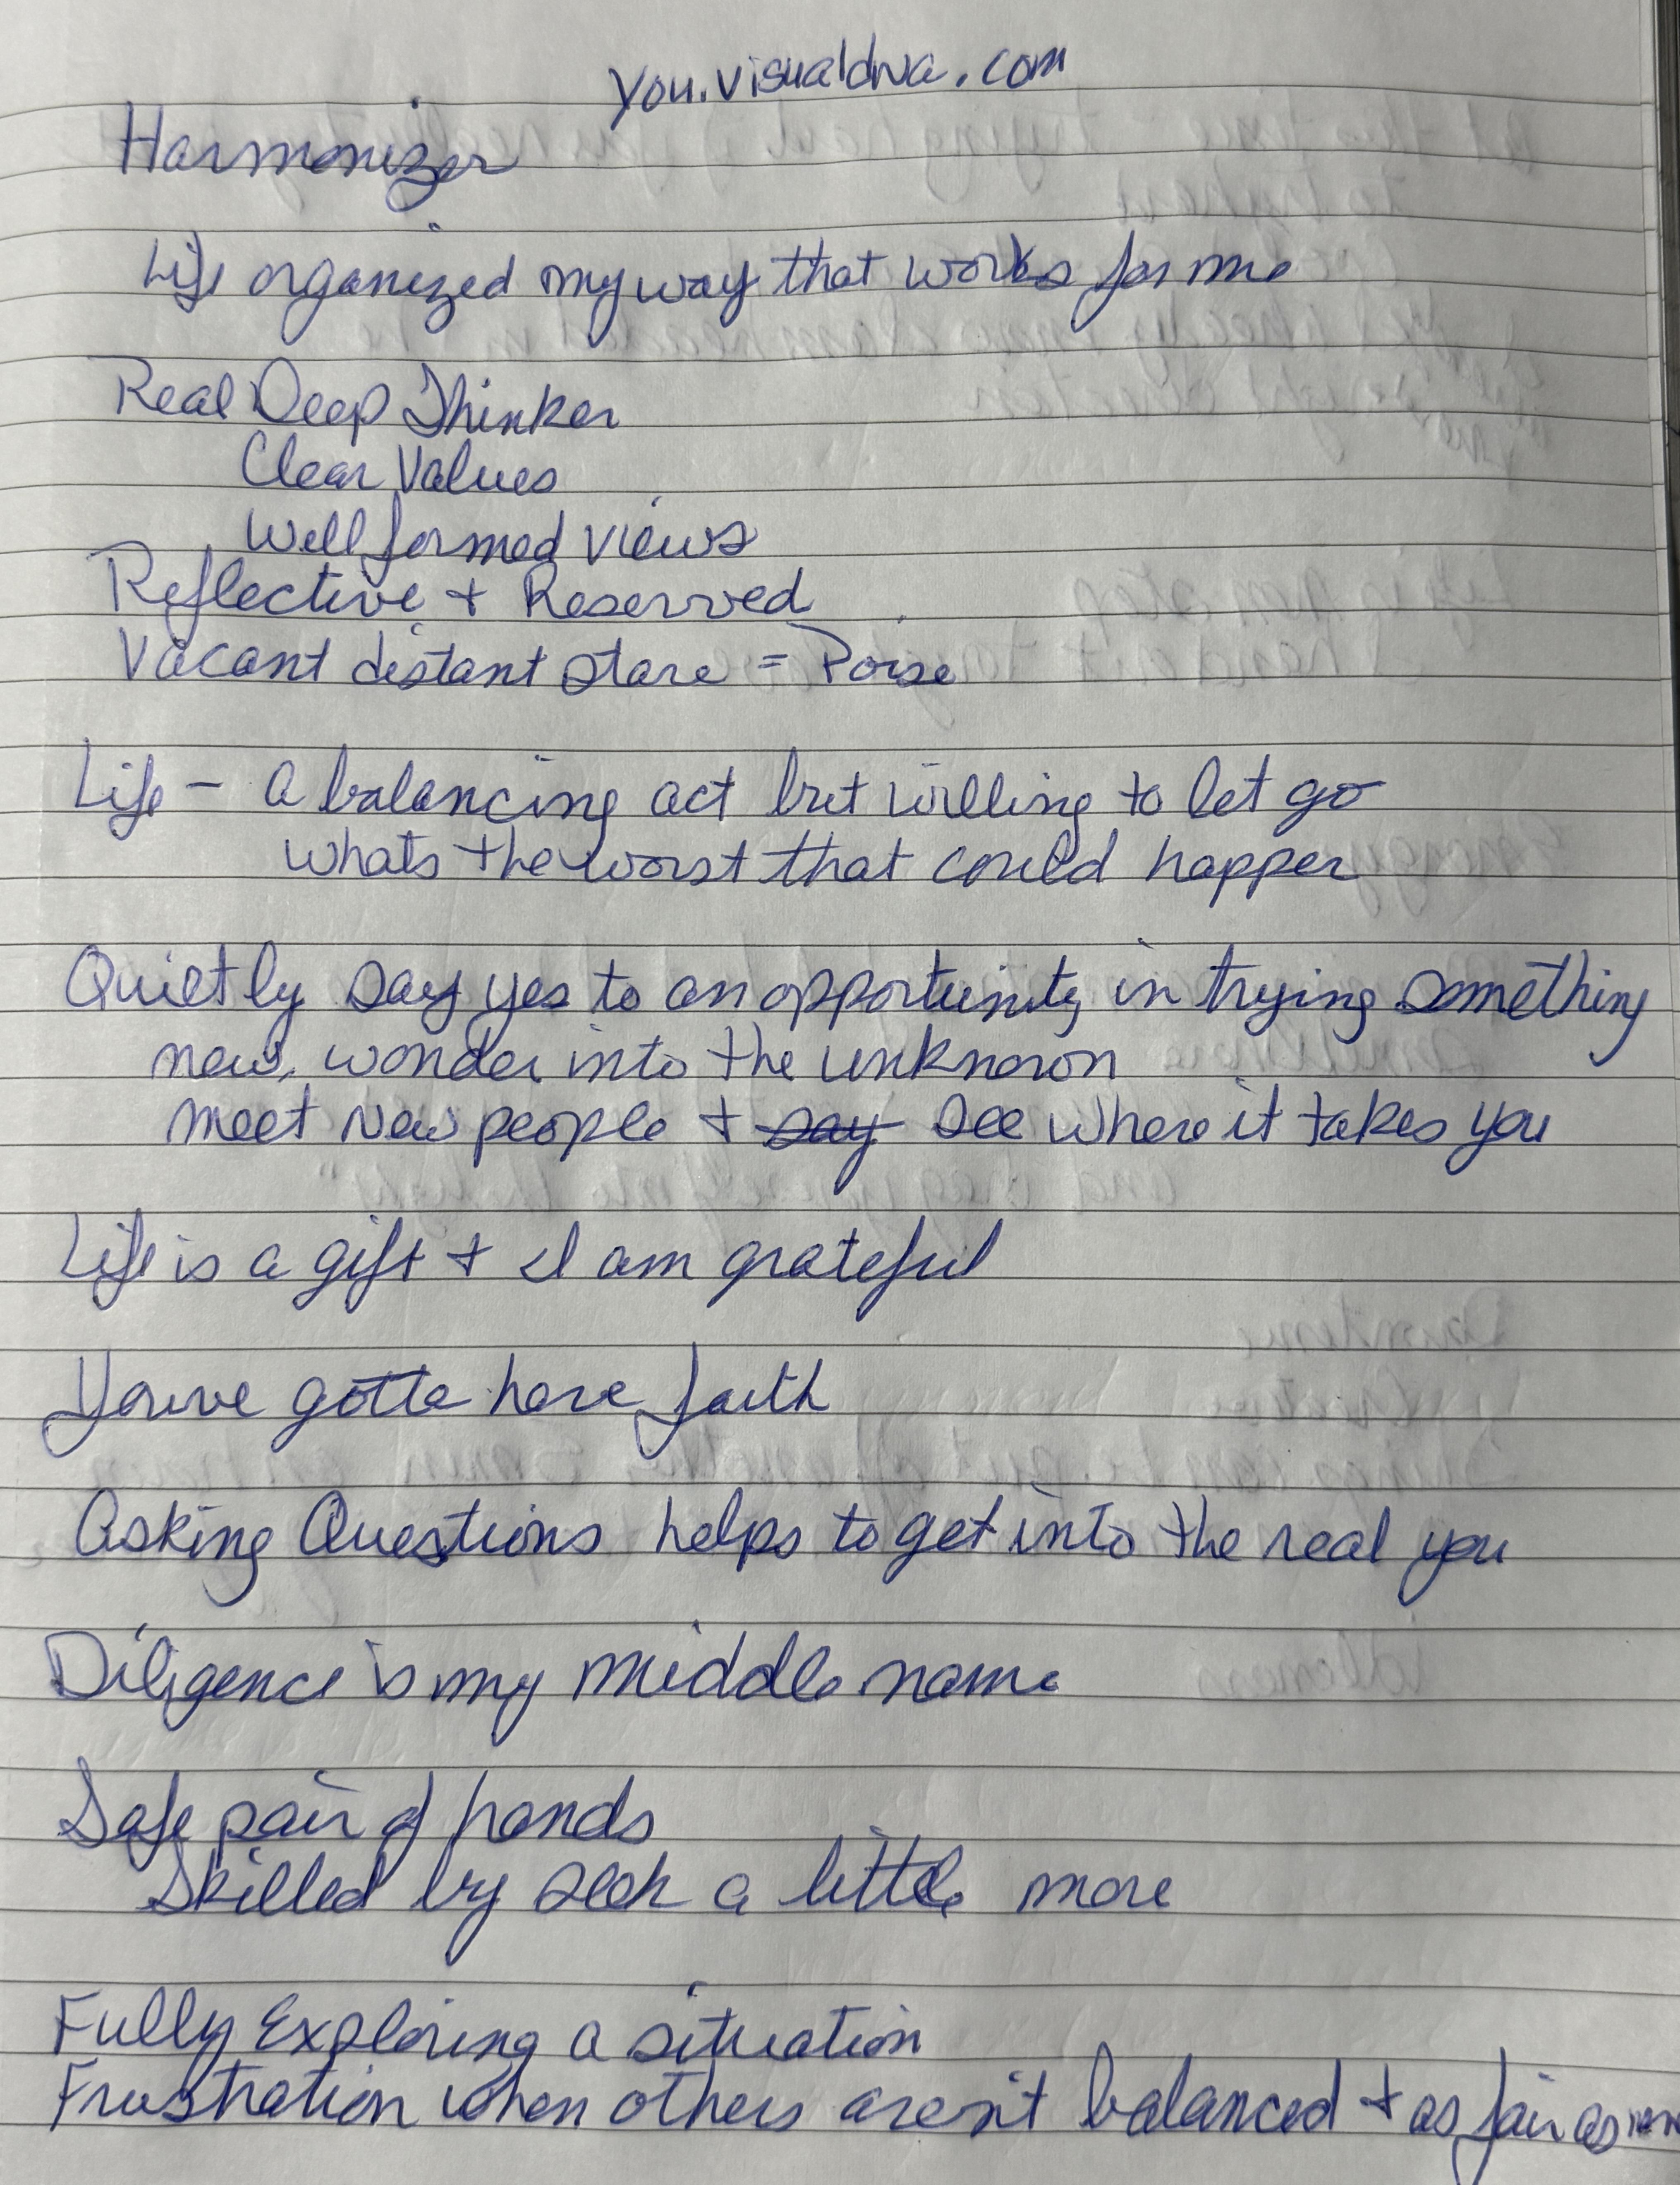 you.visualdna.com
Harmonizer
Life organized my way that works for me
Real Deep Thinker
Clear Values
Well formed views
Reflective + Reserved
Vacant distant stare = Poise
Life - a balancing act but willing to let go
whats the worst that could happen
Quietly say yes to an opportunity in trying something
new, wonder into the unknown
meet new people + say see where it takes you
Life is a gift + I am grateful
Youve gotta have faith
Asking Questions helps to get into the real you
Diligence is my middle name
Safe pair of hands
Skilled by seek a little more
Fully Exploring a situation
Frustration when others aren't balanced + as fair as